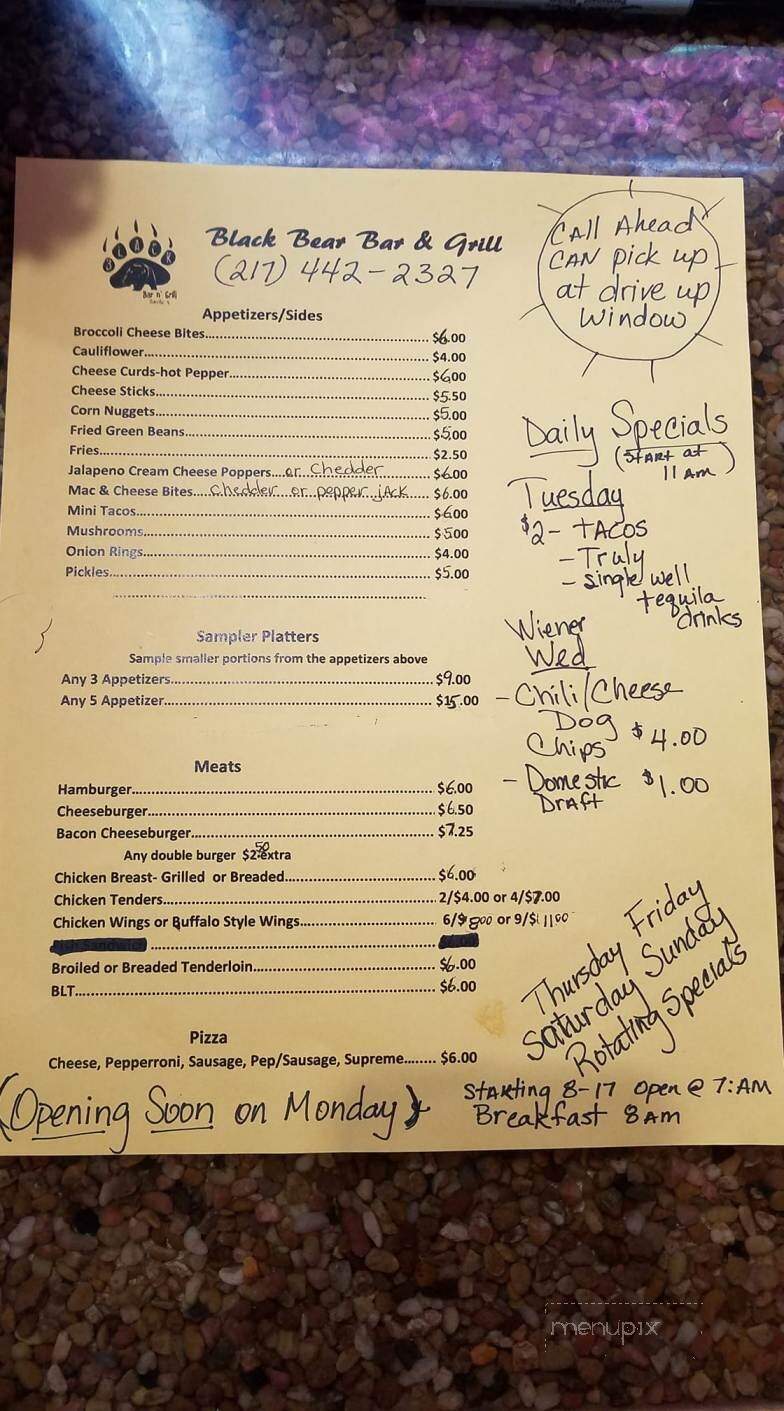 BLACK
Bar n' Grill
Black Bear Bar & Grill
(217) 442-2327
CAll Ahead
CAN pick up
at drive up
Window
Appetizers/Sides
Broccoli Cheese Bites.......... $6.00
Cauliflower.......... $4.00
Cheese Curds-hot Pepper.......... $6.00
Cheese Sticks.......... $5.50
Corn Nuggets.......... $5.00
Fried Green Beans.......... $5.00
Fries.......... $2.50
Jalapeno Cream Cheese Poppers....or Chedder.... $6.00
Mac & Cheese Bites....Chedder or pepper jAck.... $6.00
Mini Tacos.......... $6.00
Mushrooms.......... $5.00
Onion Rings.......... $4.00
Pickles.......... $5.00
Sampler Platters
Sample smaller portions from the appetizers above
Any 3 Appetizers.......... $9.00
Any 5 Appetizer.......... $15.00
Meats
Hamburger.......... $6.00
Cheeseburger.......... $6.50
Bacon Cheeseburger.......... $7.25
Any double burger $2.50 extra
Chicken Breast- Grilled or Breaded.......... $6.00
Chicken Tenders.......... 2/$4.00 or 4/$7.00
Chicken Wings or Buffalo Style Wings.......... 6/$8.00 or 9/$11.00
Broiled or Breaded Tenderloin.......... $6.00
BLT.......... $6.00
Pizza
Cheese, Pepperroni, Sausage, Pep/Sausage, Supreme........ $6.00
Daily Specials
(StARt at
11 Am)
Tuesday
$2- tACOS
- Truly
- single well
tequila
drinks
Wiener
Wed
- Chili/Cheese
Dog
Chips $4.00
- Domestic $1.00
DrAft
Thursday Friday
Saturday Sunday
Rotating Specials
(Opening Soon on Monday)
StARting 8-17 Open @ 7:AM
Breakfast 8 AM
menupix